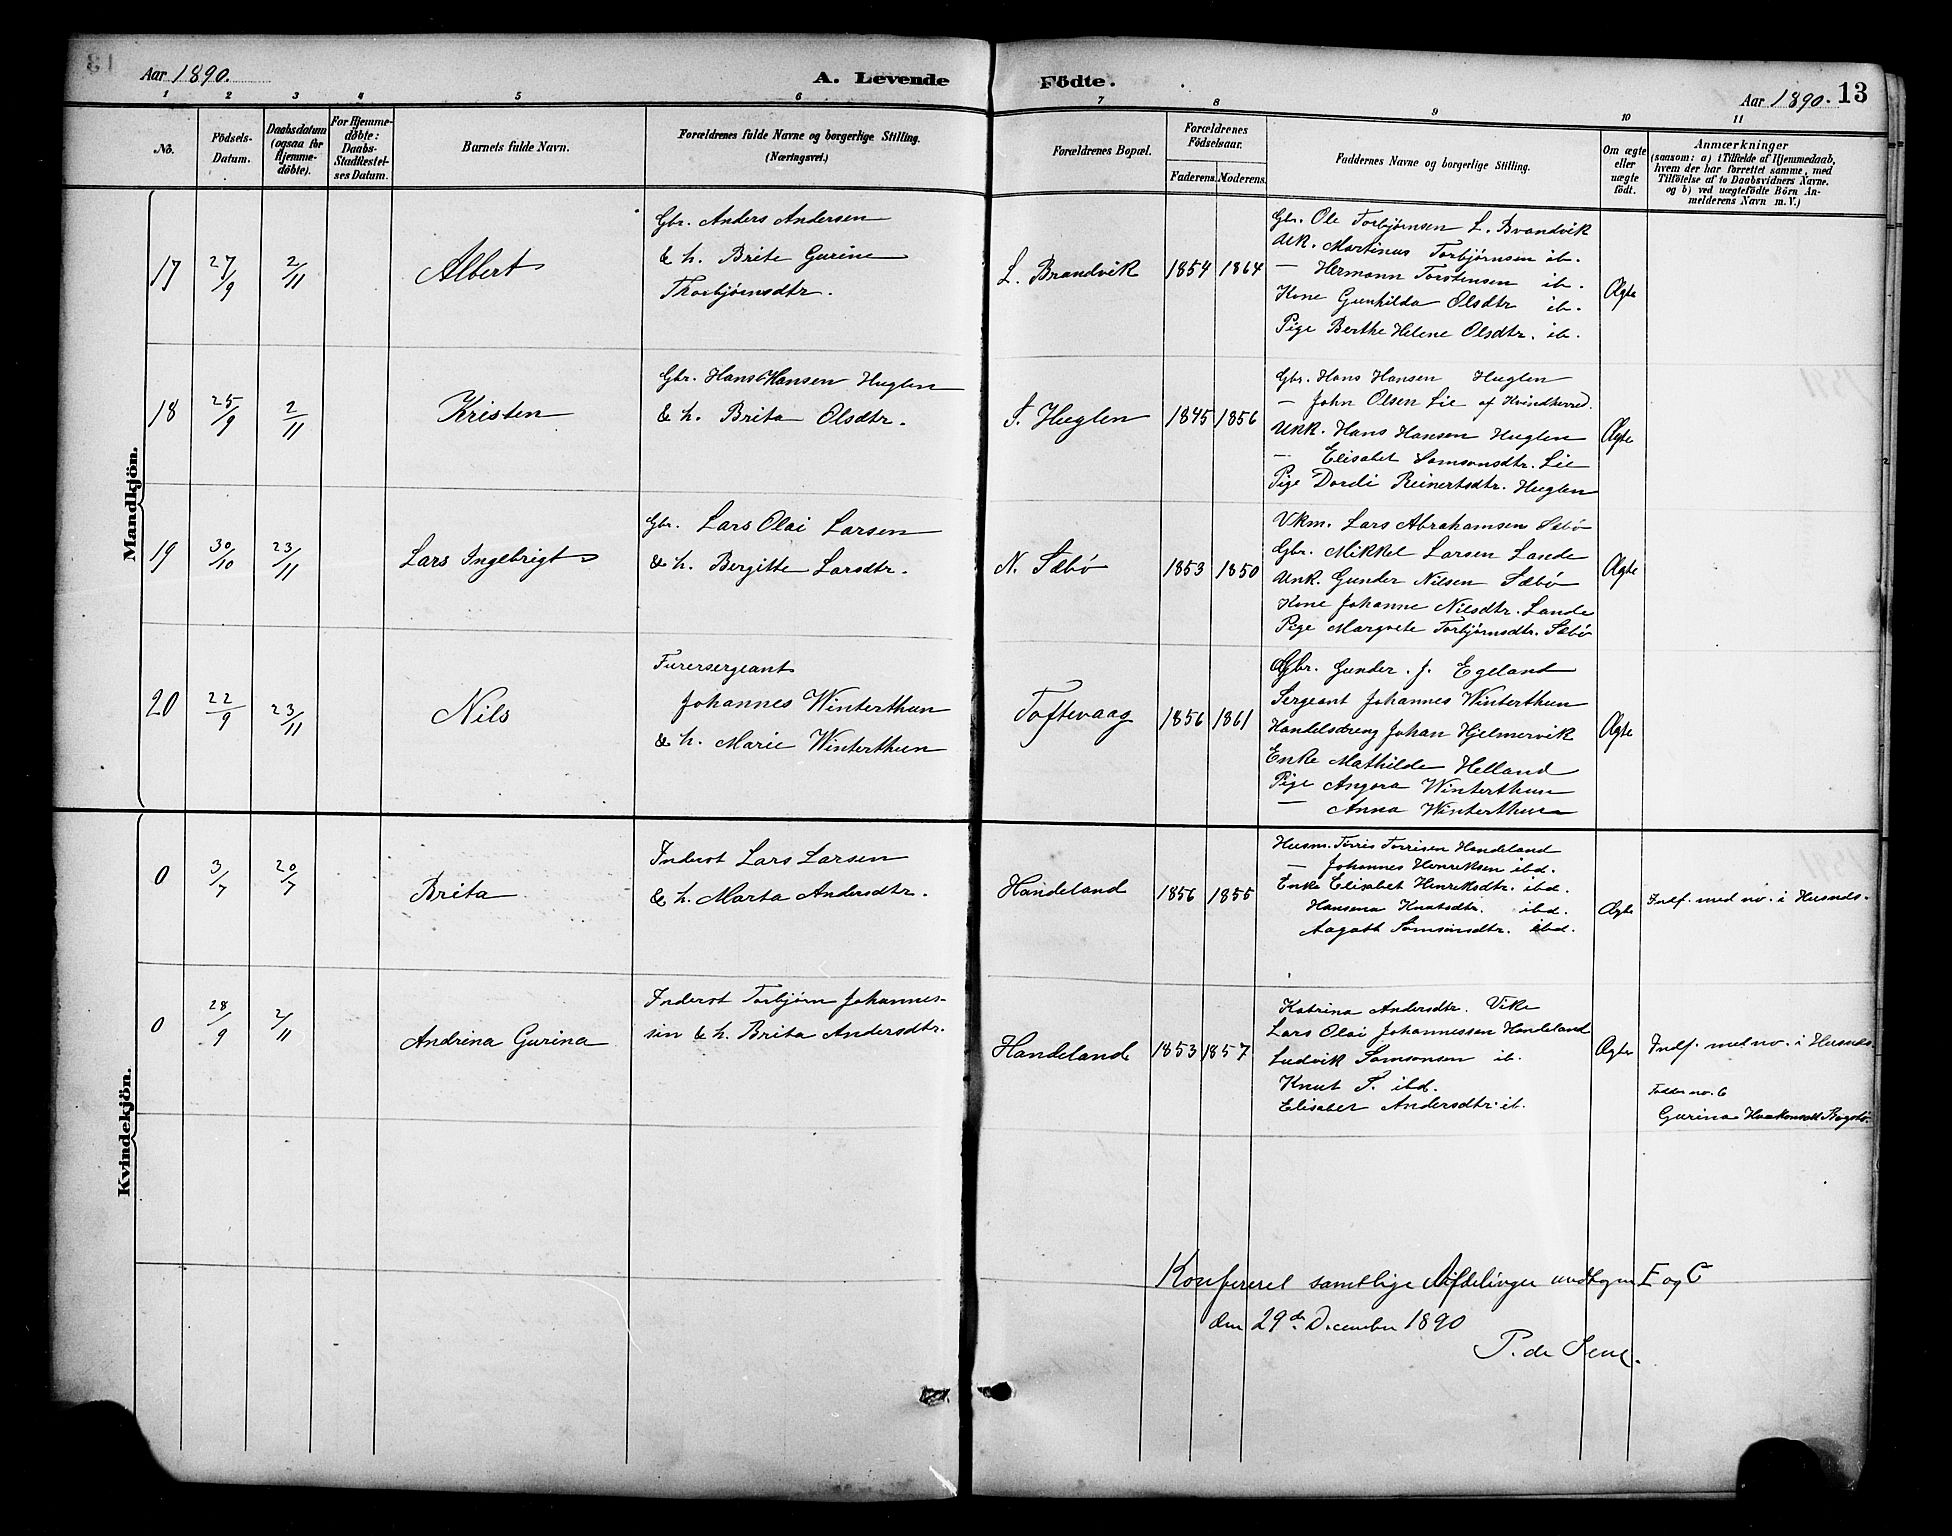 Aar 1890.
A. Levende Födte.
Aar 1890. 13
1 2 3 4 5 6 7 8 9 10 11
No.
Födsels-Datum.
Daabsdatum (ogsaa for Hjemme-döbte).
For Hjemme-döbte: Daabs-Stadfæstel-ses Datum.
Barnets fulde Navn.
Forældrenes fulde Navne og borgerlige Stilling. (Næringsvei.)
Forældrenes Bopæl.
Forældrenes Födselsaar.
Faderens. Moderens.
Faddernes Navne og borgerlige Stilling.
Om ægte eller uægte födt.
Anmærkninger
(saasom: a) i Tilfælde af Hjemmedaab, hvem der har forrettet samme, med Tilföielse af to Daabsvidners Navne. og b) ved uægtefödte Börn An-melderens Navn m. V.)
Mandkjön.
17 27/9 2/11 Albert
Gbr. Anders Andersen
& h. Brite Gurine
Thorbjørnsdtr.
L. Brandvik 1854 1864
Gbr. Ole Torbjørnsen L. Brandvik
Unk. Martinus Torbjørnsen ib.
— Hermann Torstensen ib.
Kone Gunhilda Olsdtr ib.
Pige Berthe Helene Olsdtr. ib.
Ægte
18 25/9 2/11 Kristen
Gbr. Hans Hansen Huglen
& h. Brita Olsdtr.
S. Huglen 1845 1856
Gbr. Hans Hansen Huglen
— John Olsen Lie af Kvindherred.
Unk. Hans Hansen Huglen
— Elisabet Samsonsdtr. Lie
Pige Dordi Reinertsdtr. Huglen
Ægte
19 30/10 23/11 Lars Ingebrigt
Gbr. Lars Olai Larsen
& h. Bergitte Larsdtr.
N. Sæbø 1853 1850
Vkm. Lars Abrahamsen Sæbø
Gbr. Mikkel Larsen Lande
Unk. Gunder Nilsen Sæbø
Kone Johanne Nilsdtr. Lande
Pige Margrete Torbjørnsdtr. Sæbø
Ægte
20 22/9 23/11 Nils
Furersergeant
Johannes Winterthun
& h. Marie Winterthun
Toftevaag 1856 1861
Gbr. Gunder. J. Egeland
Sergeant Johannes Winterthun
Handelsdreng Johan Hjelmervik
Enke Mathilde Helland
Pige Angora Winterthun
— Anna Winterthun
Ægte
Kvindekjön.
0 3/7 20/7 Brita
Inderst Lars Larsen
& h. Marta Andersdtr.
Handeland 1856 1855
Husm. Torris Torrisen Handeland
— Johannes Henriksen ibd.
Enke Elisabet Henriksdtr. ibd.
Hansena Knutsdtr. ibd.
Aagott Samsonsdtr. ibd.
Ægte
Indf. med no. i Husnds.
0 28/9 2/11 Andrina Gurina
Inderst Torbjørn Johannes-
sen & h. Brita Andersdtr.
Handeland 1853 1857
Katrina Andersdtr. Vike
Lars Olai Johannessen Handeland
Ludvik Samsonsen ib.
Knut S. ibd.
Elisabet Andersdtr. ib.
Ægte
Indf. met no. i Husnds.
Fadder no. 6
Gurina Haakonsdtr
Konfereret samtlige Afdelinger undtagen E og C
den 29de December 1890
P. de